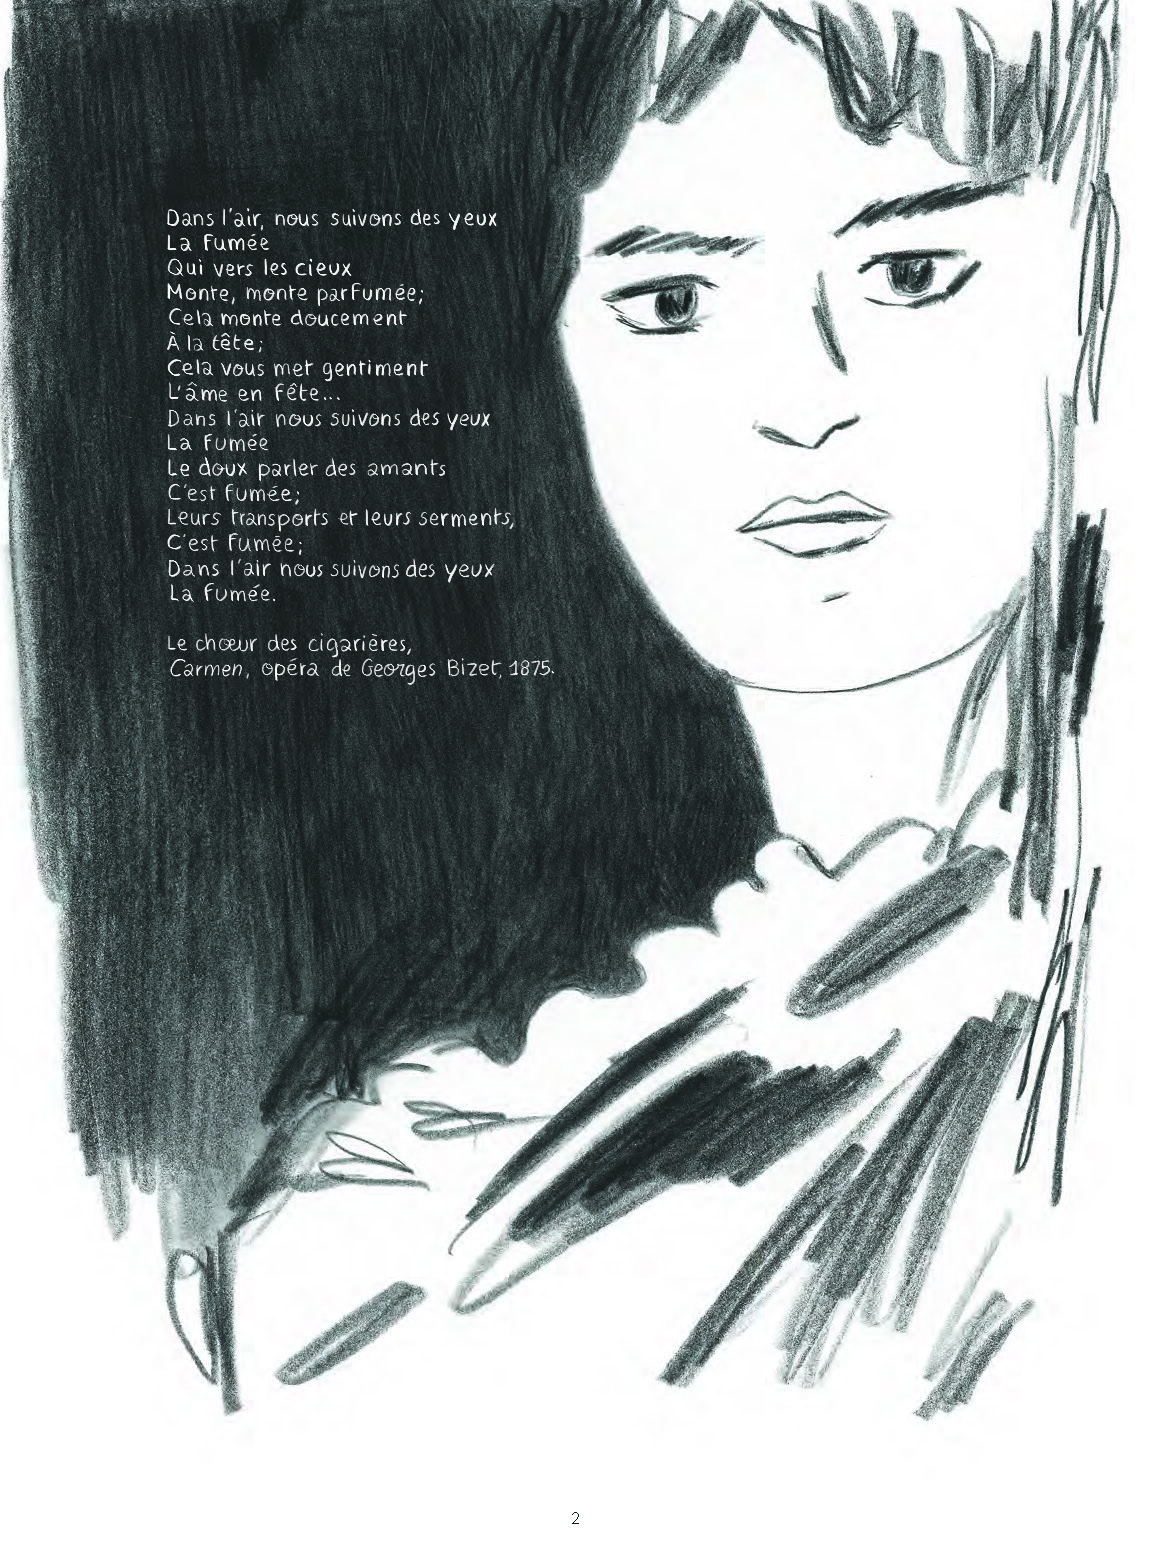 Dans l'air, nous suivons des yeux
La fumée
Qui vers les cieux
Monte, monte parfumée;
Cela monte doucement
À la tête;
Cela vous met gentiment
L'âme en fête...
Dans l'air nous suivons des yeux
La fumée
Le doux parler des amants
C'est fumée;
Leurs transports et leurs serments,
C'est fumée;
Dans l'air nous suivons des yeux
La fumée.
Le chœur des cigarières,
Carmen, opéra de Georges Bizet, 1875.
2